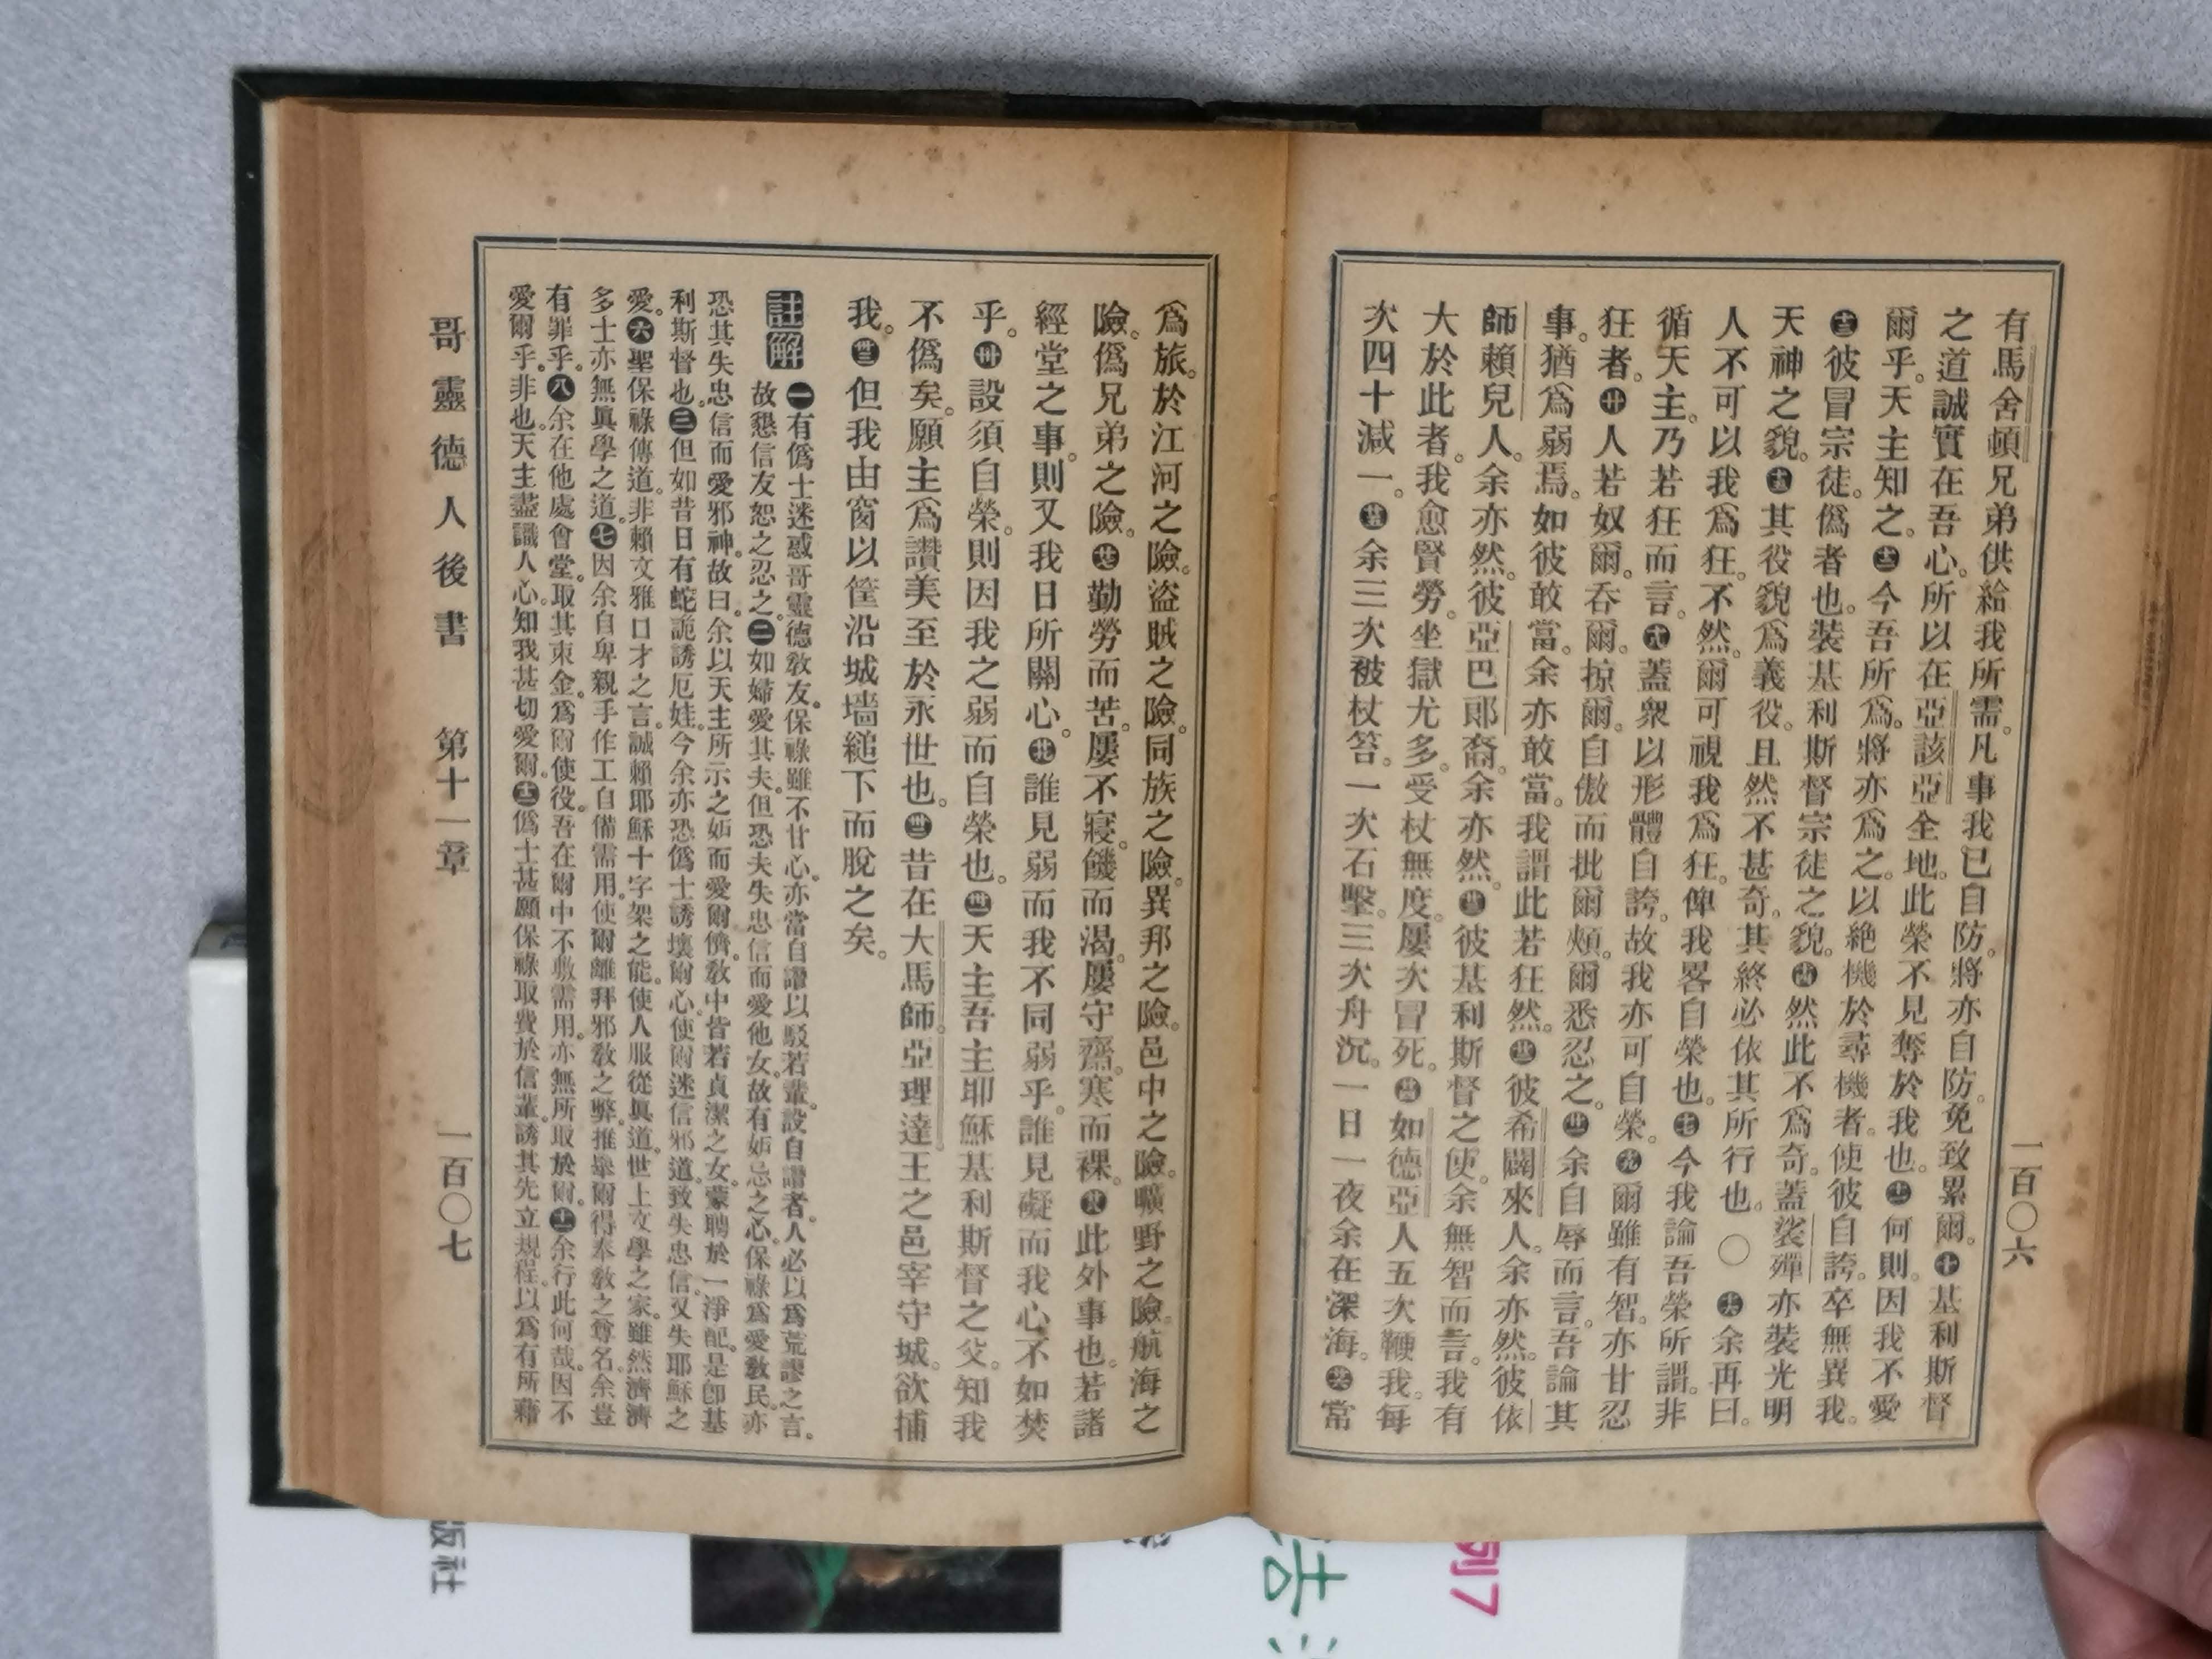 有馬舍頓兄弟供給我所需。凡事我已自防。將亦自防。免致累爾。㊉基利斯督
之道誠實在吾心。所以在亞該亞全地。此榮不見奪於我也。⓫何則。因我不愛
爾乎。天主知之。⓬今吾所爲。將亦爲之。以絶機於尋機者。使彼自誇。卒無異我。
⓭彼冒宗徒。僞者也。裝基利斯督宗徒之貌。⓮然此不爲奇。蓋裟殫亦裝光明
天神之貌。⓯其役貌爲義役。且然不甚奇。其終必依其所行也。〇⓰余再曰。
人不可以我爲狂。不然。爾可視我爲狂。俾我畧自榮也。⓱今我論吾榮所謂。非
循天主。乃若狂而言。⓲蓋衆以形體自誇。故我亦可自榮。⓳爾雖有智。亦甘忍
狂者。⓴人若奴爾。吞爾。掠爾。自傲而批爾頰。爾悉忍之。㉑余自辱而言。吾論其
事。猶爲弱焉。如彼敢當。余亦敢當。我謂此若狂然。㉒彼希闢來人。余亦然。彼依
師賴兒人。余亦然。彼亞巴郎裔。余亦然。㉓彼基利斯督之使。余無智而言。我有
大於此者。我愈賢勞。坐獄尤多。受杖無度。屢次冒死。㉔如德亞人五次鞭我。每
次四十減一。㉕余三次被杖笞。一次石擊。三次舟沉。一日一夜余在深海。㉖常
一百〇六
爲旅。於江河之險。盜賊之險。同族之險。異邦之險。邑中之險。曠野之險。航海之
險。僞兄弟之險。㉗勤勞而苦。屢不寢。饑而渴。屢守齋。寒而裸。㉘此外事也。若諸
經堂之事。則又我日所關心。㉙誰見弱而我不同弱乎。誰見礙而我心不如焚
乎。㉚設須自榮。則因我之弱而自榮也。㉛天主吾主耶穌基利斯督之父。知我
不僞矣。願主爲讚美至於永世也。㉜昔在大馬師。亞理達王之邑宰守城。欲捕
我。㉝但我由窗以筐沿城墻縋下而脫之矣。
註解 ㊀有僞士迷惑哥靈德敎友。保祿雖不甘心。亦當自讚以駁若輩。設自讚者。人必以爲荒謬之言。
故懇信友恕之忍之。㊁如婦愛其夫。但恐夫失忠信而愛他女。故有妬忌之心。保祿爲愛敎民。亦
恐其失忠信而愛邪神。故曰。余以天主所示之妬而愛爾儕。敎中皆若貞潔之女。蒙聘於一淨配。是卽基
利斯督也。㊂但如昔日有蛇詭誘厄娃。今余亦恐僞士誘壞爾心。使爾迷信邪道。致失忠信。又失耶穌之
愛。㊅聖保祿傳道。非賴文雅口才之言。誠賴耶穌十字架之能。使人服從眞道。世上文學之家。雖然濟濟
多士。亦無眞學之道。㊆因余自卑親手作工自備需用。使爾離拜邪敎之弊。推舉爾得奉敎之尊名。余豈
有罪乎。㊇余在他處會堂。取其束金。爲爾使役。吾在爾中不敷需用。亦無所取於爾。⓫余行此何哉。因不
愛爾乎。非也。天主盡識人心。知我甚切愛爾。⓬僞士甚願保祿取費於信輩。誘其先立規程。以爲有所藉
哥靈德人後書 第十一章 一百〇七
版社
列7